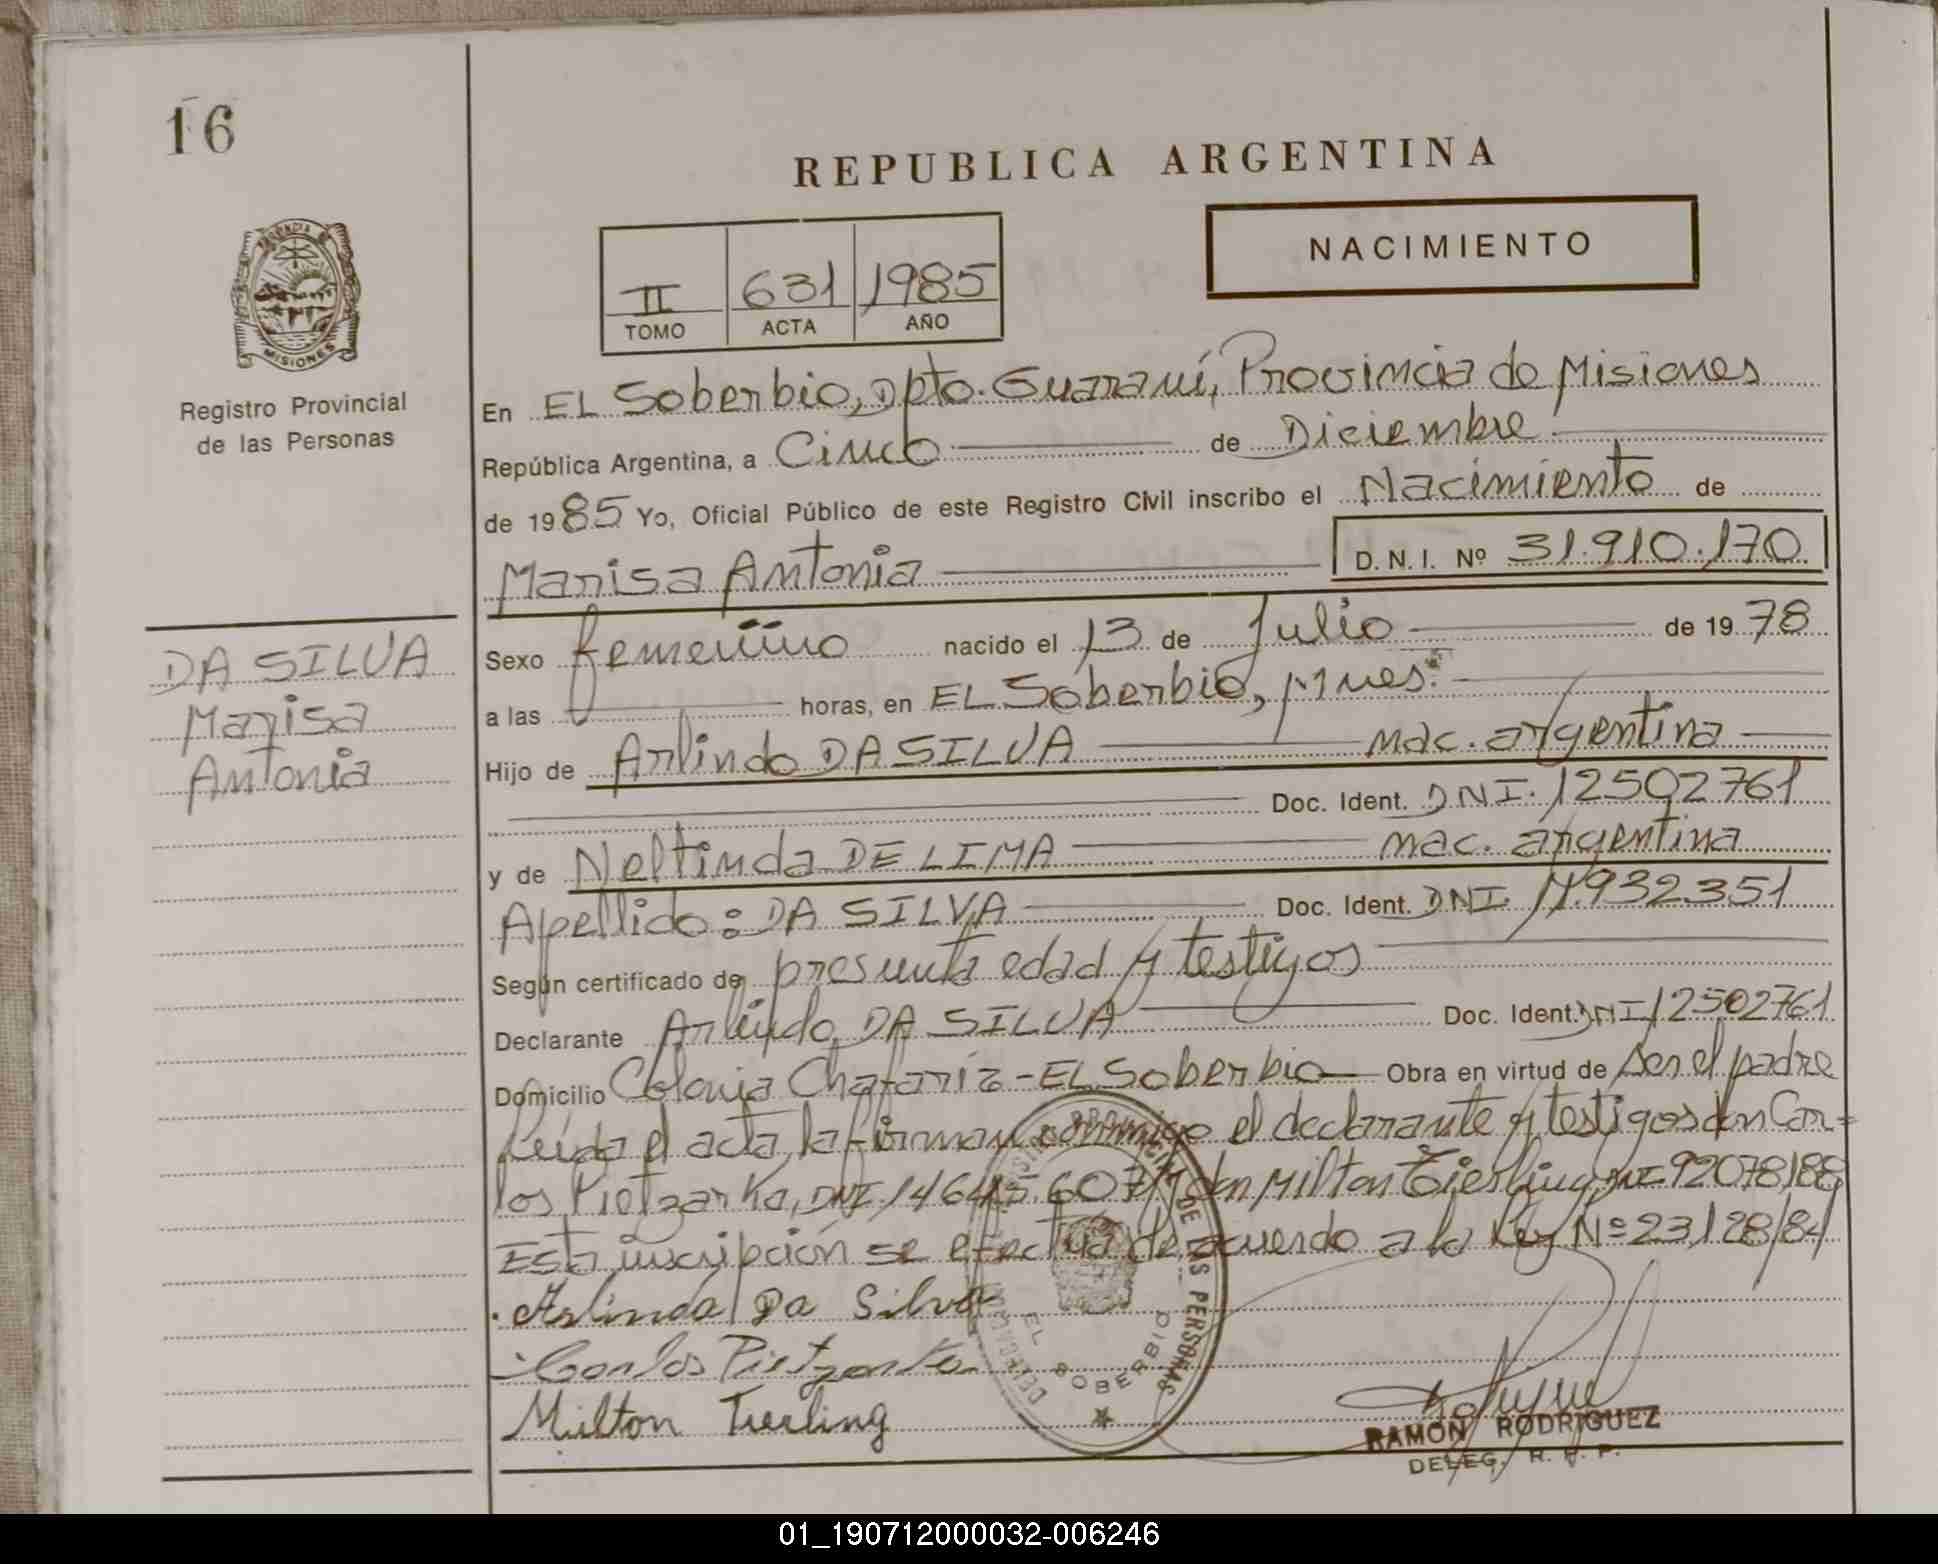 16
REPUBLICA ARGENTINA
NACIMIENTO
II 631 1985
TOMO ACTA AÑO
MISIONES
Registro Provincial
de las Personas
DA SILVA
Marisa
Antonia
En EL Soberbio, Dpto. Guaraní, Provincia de Misiones
República Argentina, a Cinco de Diciembre
de 1985 Yo, Oficial Público de este Registro Civil inscribo el Nacimiento de
Marisa Antonia D.N.I. Nº 31.910.170
Sexo femenino nacido el 13 de Julio de 1978
a las horas, en EL Soberbio, Mnes.
Hijo de Arlindo DA SILVA nac. argentina
Doc. Ident. DNI. 12502761
y de Neltinda DE LIMA nac. argentina
Apellido: DA SILVA Doc. Ident. DNI. 17.932351
Según certificado de presunta edad y testigos
Declarante Arlindo DA SILVA Doc. Ident. DNI 12502761
Domicilio Colonia Chafaríz - EL Soberbio Obra en virtud de ser el padre
Leída el acta, la firman conmigo el declarante y testigos don Car=
los Pietzarka, DNI y don Milton Tierling, DNI 92078188
Esta inscripción se efectúa de acuerdo a la Ley Nº 23128/84
Arlindo Da Silva
Carlos Pietzarka
Milton Tierling
EL SOBERBIO
RAMON RODRIGUEZ
DELEG. R. P. P.
01_190712000032-006246